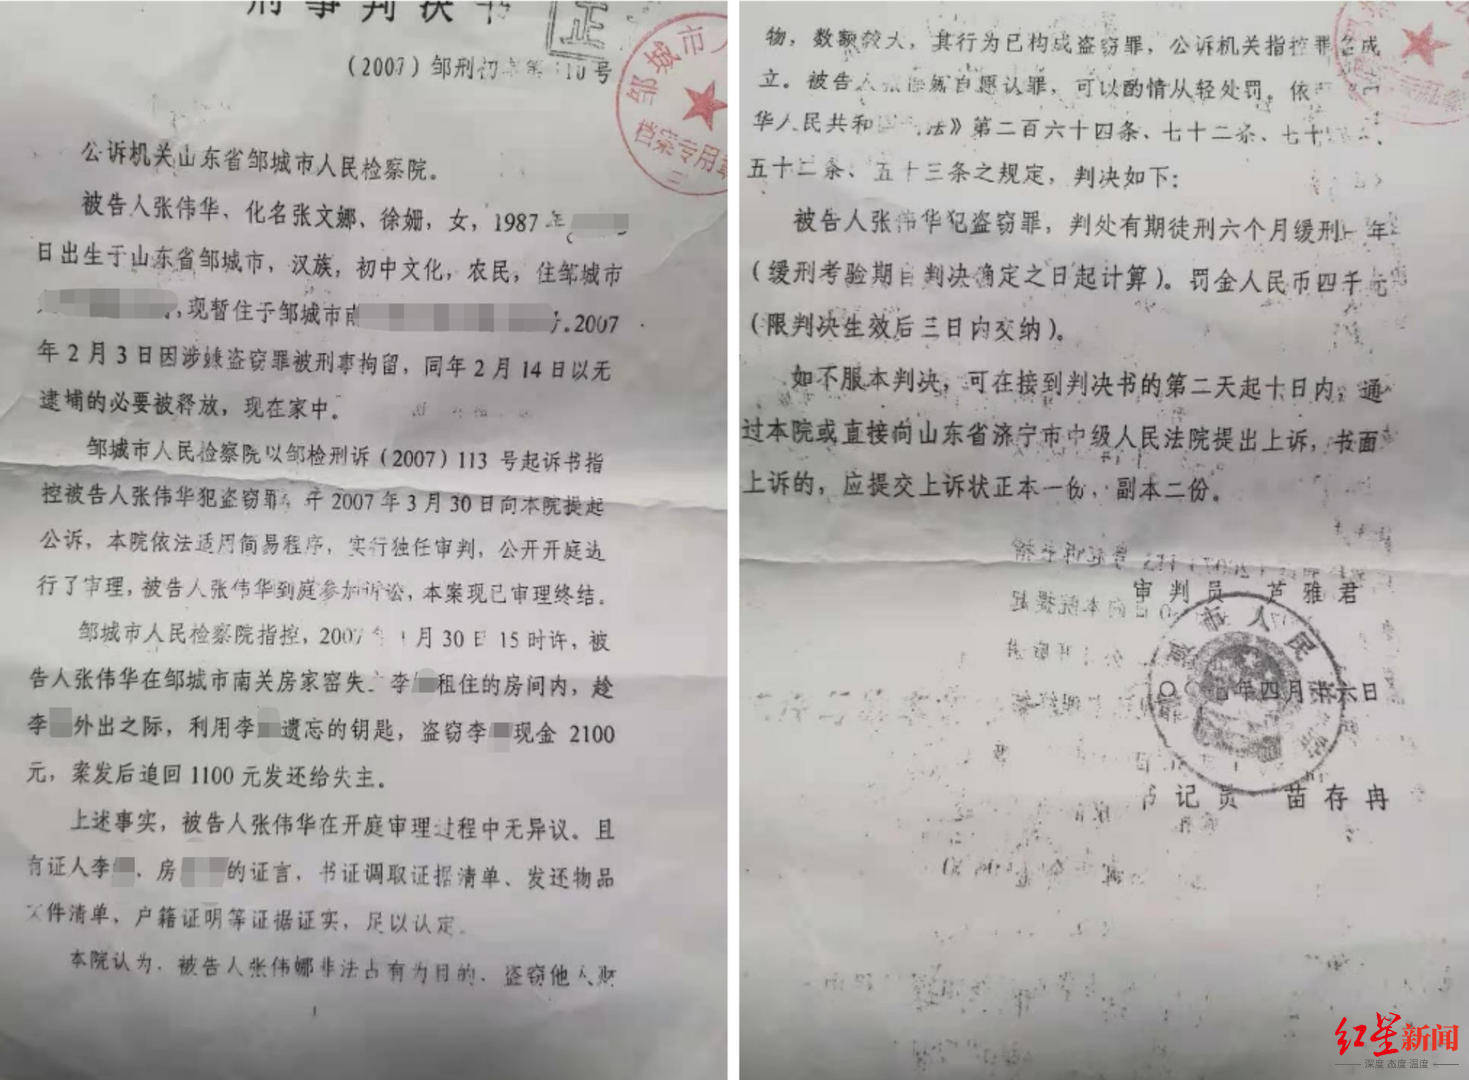 刑事判决书
正
(2007)邹刑初 第110号
邹城市人
档案专用章
公诉机关山东省邹城市人民检察院。
被告人张伟华、化名张文娜、徐姗,女,1987年
日出生于山东省邹城市,汉族,初中文化,农民,住邹城市
,现暂住于邹城市南 .2007
年2月3日因涉嫌盗窃罪被刑事拘留,同年2月14日以无
逮埔的必要被释放,现在家中。
邹城市人民检察院以邹检刑诉(2007)113 号起诉书指
控被告人张伟华犯盗窃罪,并2007年3月30日向本院提起
公诉,本院依法适用简易程序,实行独任审判,公开开庭进
行了审理,被告人张伟华到庭参加诉讼,本案现已审理终结。
邹城市人民检察院指控,2007年1月30日15时许,被
告人张伟华在邹城市南关房家窑失主李 租住的房间内,趁
李 外出之际,利用李 遗忘的钥匙,盗窃李 现金 2100
元,案发后追回1100元发还给失主。
上述事实,被告人张伟华在开庭审理过程中无异议。且
有证人李 、房 的证言,书证调取证据清单、发还物品
文件清单、户籍证明等证据证实,足以认定。
本院认为,被告人张伟娜非法占有为目的,盗窃他人财
1
物,数额较大,其行为已构成盗窃罪,公诉机关指控罪名成
立。被告人张 自愿认罪,可以酌情从轻处罚。依
华人民共和国 法》第二百六十四条、七十二条、七十
五十二条、五十三条之规定,判决如下:
被告人张伟华犯盗窃罪,判处有期徒刑六个月缓刑 年
(缓刑考验期自判决确定之日起计算)。罚金人民币四千元
(限判决生效后三日内交纳)。
如不服本判决,可在接到判决书的第二天起十日内,通
过本院或直接向山东省济宁市中级人民法院提出上诉,书面
上诉的,应提交上诉状正本一份,副本二份。
审 判 员 芦 雅 君
市人民
年四月 六日
书 记 员 苗 存 冉
红星新闻
深度 态度 温度